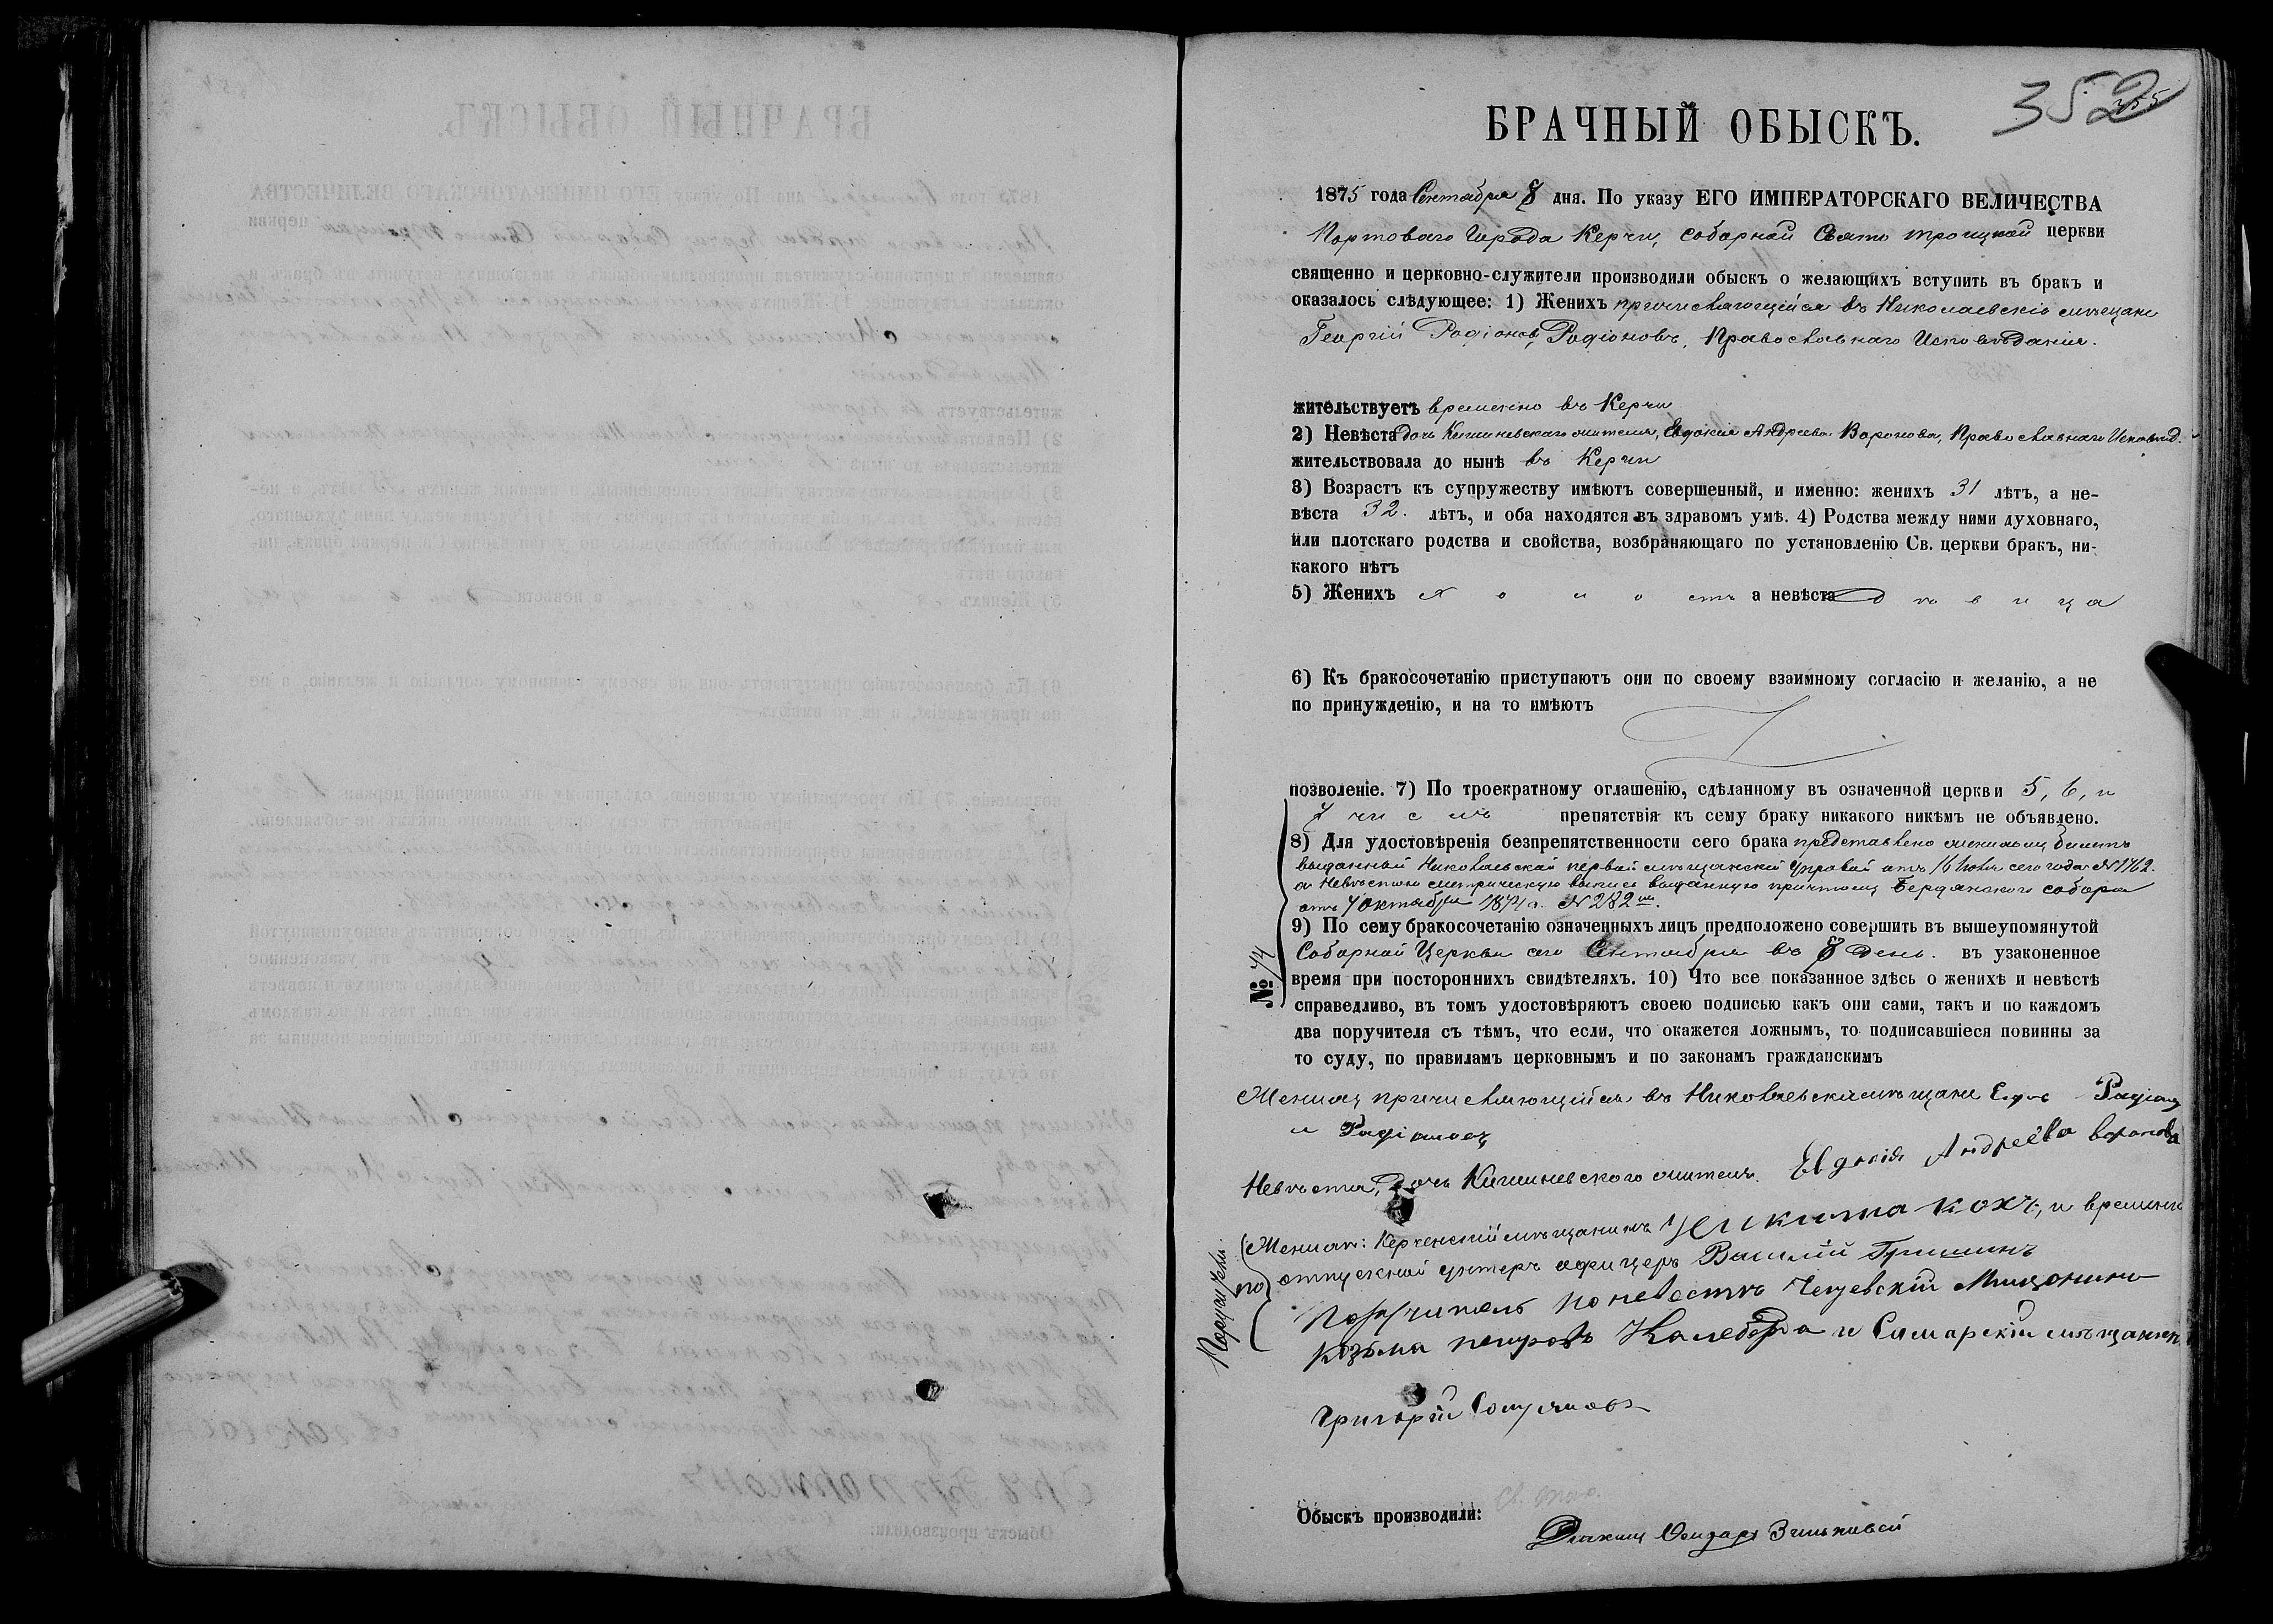 352
БРАЧНЫЙ ОБЫСКЪ.
1875 года Сентября 8 дня. По указу ЕГО ИМПЕРАТОРСКАГО ВЕЛИЧЕСТВА
Портоваго Города Керчи, соборной Свято Троицкой церкви
священно и церковно-служители производили обыскъ о желающихъ вступить въ бракъ и
оказалось слѣдующее: 1) Женихъ причисляющійся въ Николаевскіе мѣщане
Георгій Родіоновъ Родіоновъ, Православнаго Исповѣданія.
жительствуетъ временно въ Керчи
2) Невѣста дочь Кишиневскаго жителя, Евдокія Андреева Воронова, Православнаго Исповѣд.
жительствовала до нынѣ въ Керчи
3) Возрастъ къ супружеству имѣютъ совершенный, и именно: женихъ 31 лѣтъ, а не-
вѣста 32. лѣтъ, и оба находятся въ здравомъ умѣ. 4) Родства между ними духовнаго,
или плотскаго родства и свойства, возбраняющаго по установленію Св. церкви бракъ, ни-
какого нѣтъ
5) Женихъ холостъ а невѣста дѣвица
6) Къ бракосочетанію приступаютъ они по своему взаимному согласію и желанію, а не
по принужденію, и на то имѣютъ
позволеніе. 7) По троекратному оглашенію, сдѣланному въ означенной церкви 5, 6, и
7 числъ препятствія къ сему браку никакого никѣмъ не объявлено.
8) Для удостовѣренія безпрепятственности сего брака представлено женихомъ билетъ
выданный Николаевской первой мѣщанской управой отъ 16 Іюня сего года № 1762.
а Невѣстою метрическую выпись выданную причтомъ Бердянскаго собора
отъ 7 октября 1871 г. № 282
9) По сему бракосочетанію означенныхъ лицъ предположено совершить въ вышеупомянутой
Соборной Церкви сего Сентября въ 8 день. въ узаконенное
время при постороннихъ свидѣтеляхъ. 10) Что все показанное здѣсь о женихѣ и невѣстѣ
справедливо, въ томъ удостовѣряютъ своею подписью какъ они сами, такъ и по каждомъ
два поручителя съ тѣмъ, что если, что окажется ложнымъ, то подписавшіеся повинны за
то суду, по правиламъ церковнымъ и по законамъ гражданскимъ
№
Женихъ причисляющійся въ Николаевскіе мѣщане
Невѣста, дочь Кишиневского жителя. Евдокія Андреева Воронова
Поручители по
Женихѣ: Керченскій мѣщанинъ Никита Кохъ, и временно
отпускной унтеръ офицеръ Василій Гришинъ
Поручитель по невестѣ Мищонинъ
Козьма Петровъ и Самарскій мѣщанинъ
Григорій
Обыскъ производили: